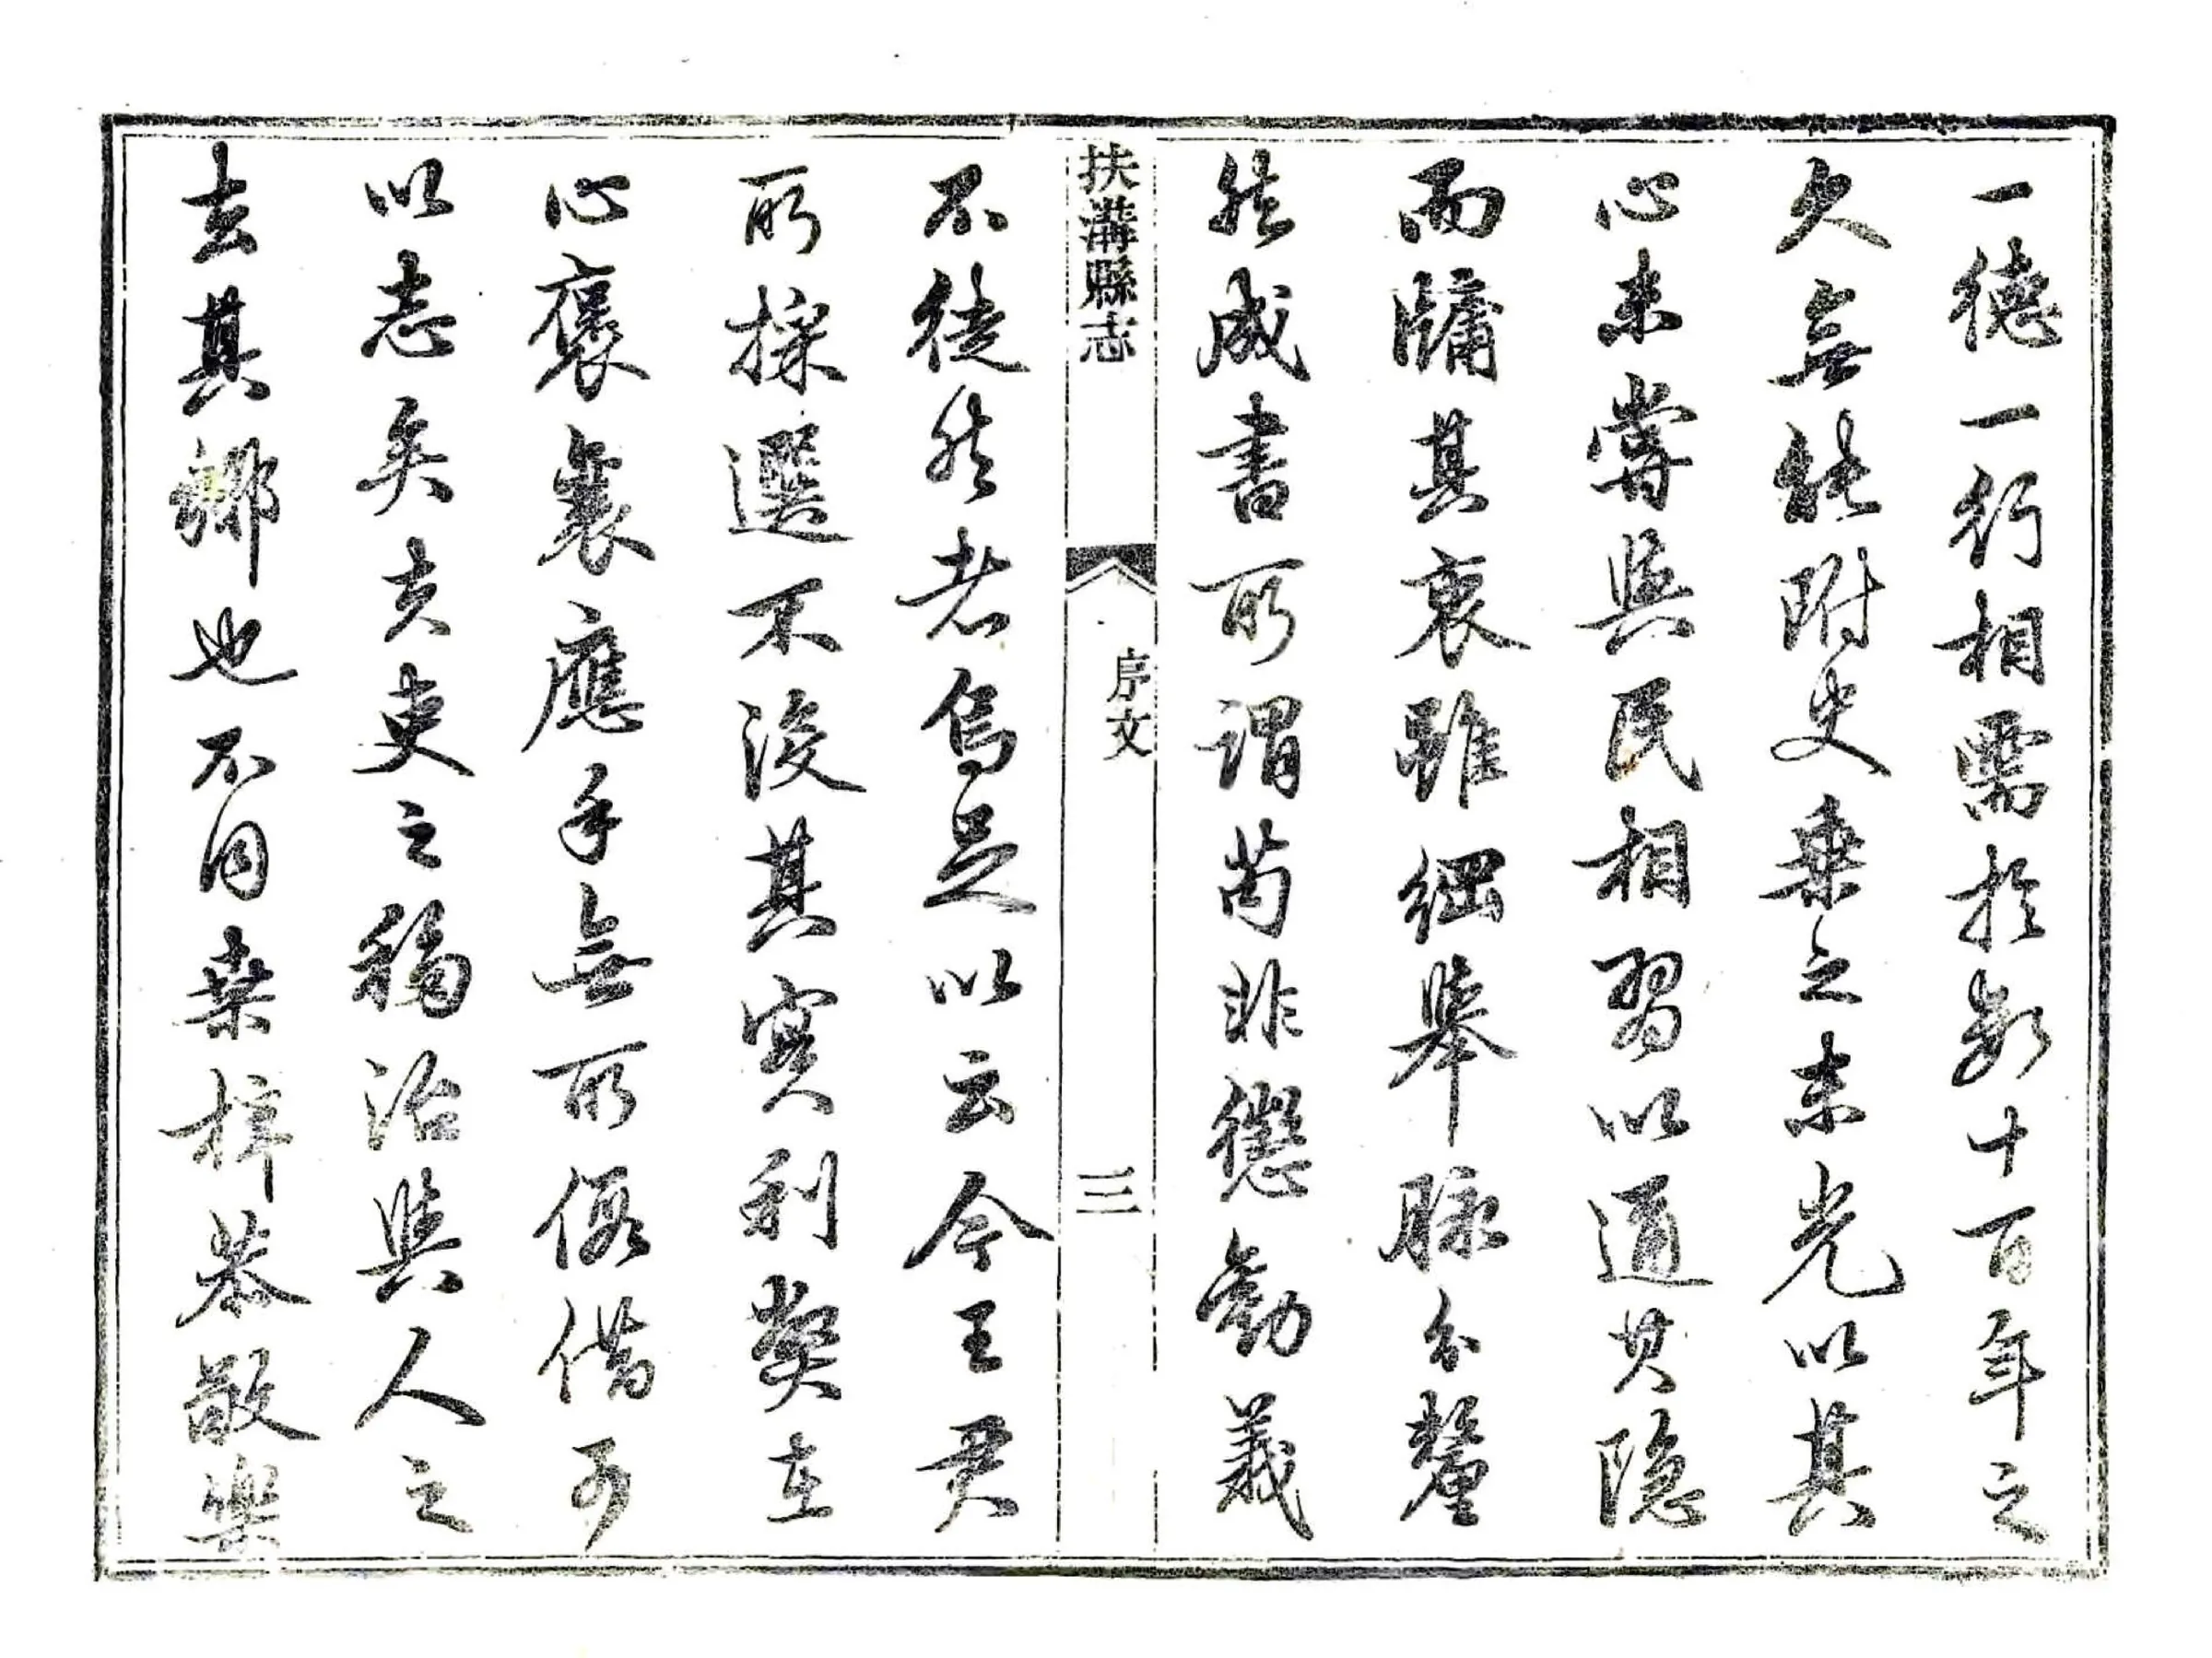 一德一行相需於數十百年之
久無能附史乗之末光以其
心未嘗與民相習以通其隱
而牖其衷雖綱舉脉分釐
然成書所謂苟非懲勸義
扶溝縣志
序文
三
不徒然者烏足以云今王君
所採選不没其實利獘在
心褒應手無所假借可
以志矣夫吏之移治與人之
去其鄉也不同桑梓恭敬樂